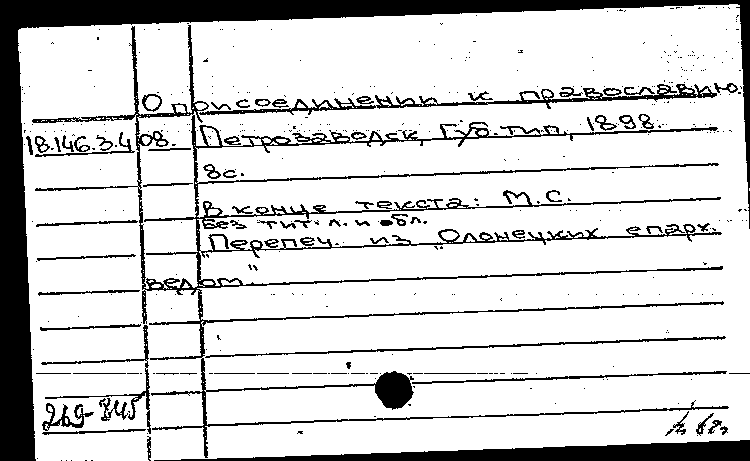 О присоединении к православию.
18.146.3.408. Петрозаводск, Губ. тип., 1898.
8с.
В конце текста: М.С.
Без тит. л. и обл.
"Перепеч. из "Олонецких епарх.
ведом."
269-845